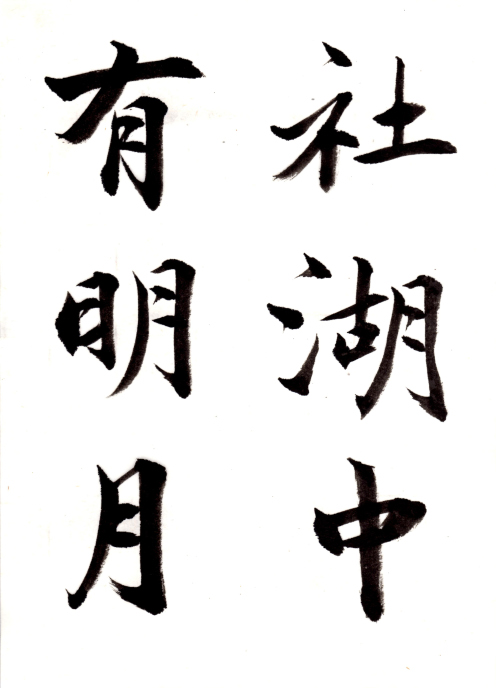 社湖中
有明月